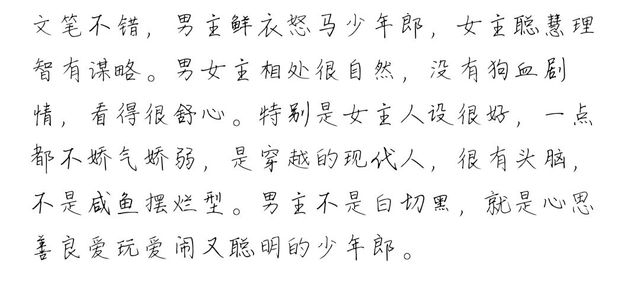 文笔不错，男主鲜衣怒马少年郎，女主聪慧理
智有谋略。男女主相处很自然，没有狗血剧
情，看得很舒心。特别是女主人设很好，一点
都不娇气娇弱，是穿越的现代人，很有头脑，
不是咸鱼摆烂型。男主不是白切黑，就是心思
善良爱玩爱闹又聪明的少年郎。